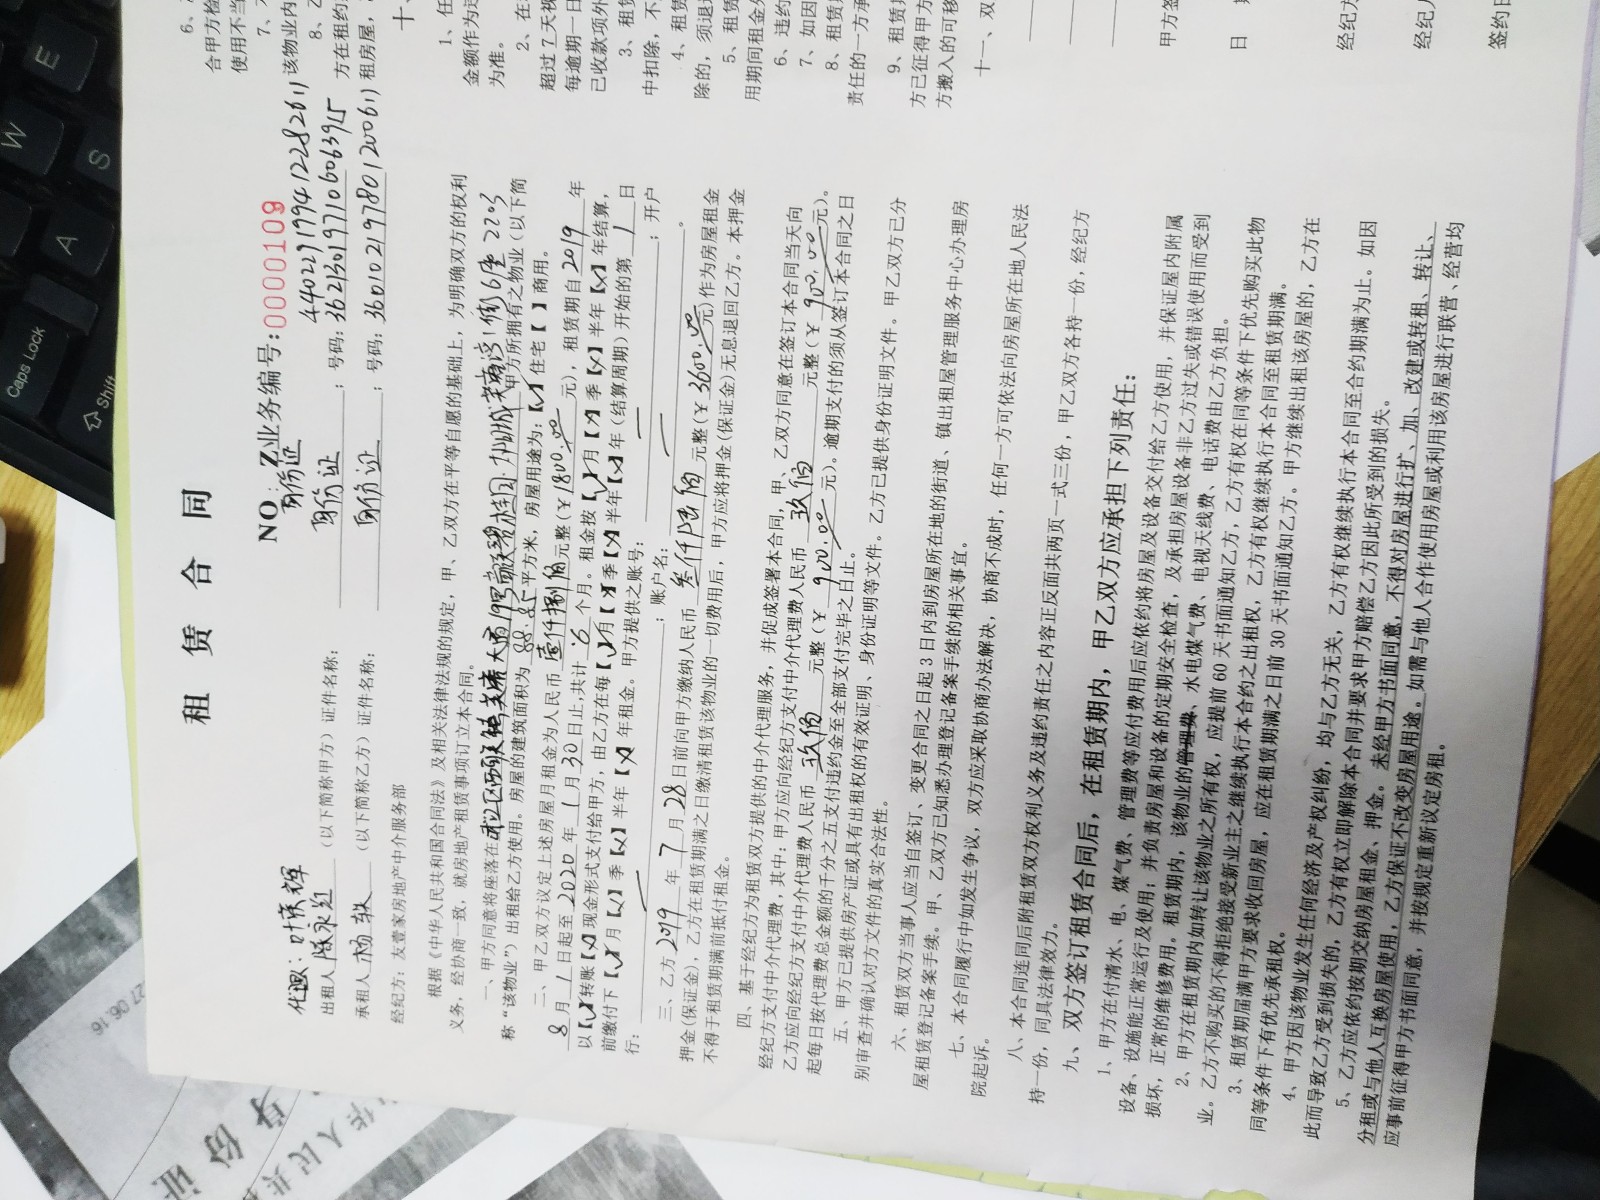 租 赁 合 同
NO Z业务编号:0000109
代理:叶庆辉 身份证 440221199412282611
出租人 陈永红 (以下简称甲方)证件名称: 身份证 ;号码: 362130197710606391
承租人 杨 (以下简称乙方)证件名称: 身份证 ;号码: 360102197801200611
经纪方:友壹家房地产中介服务部
根据《中华人民共和国合同法》及相关法律法规的规定,甲、乙双方在平等自愿的基础上,为明确双方的权利
义务,经协商一致,就房地产租赁事项订立本合同。
一、甲方同意将座落在 6座2203 甲方所拥有之物业(以下简
称“该物业”)出租给乙方使用。房屋的建筑面积为 88.85 平方米,房屋用途为:【✓】住宅【 】商用。
二、甲乙双方议定上述房屋月租金为人民币 壹仟捌佰 元整(¥ 1800.00 元),租赁期自 2019 年
8 月 1 日起至 2020 年 1 月 30 日止,共计 6 个月。租金按【✓】月【×】季【×】半年【×】年结算,
以【✓】转账【×】现金形式支付给甲方,由乙方在每【✓】月【×】季【×】半年【×】年(结算周期)开始的第 1 日
前缴付下【✓】月【×】季【×】半年【×】年租金。甲方提供之账号:
行: ;账户名: ;开户
三、乙方 2019 年 7 月 28 日前向甲方缴纳人民币 叁仟陆佰 元整(¥ 3600.00 元,作为房屋租金
押金(保证金),乙方在租赁期满之日缴清租赁该物业的一切费用后,甲方应将押金(保证金)无息退回乙方。本押金
不得于租赁期满前抵付租金。
四、基于经纪方为租赁双方提供的中介代理服务,并促成签署本合同,甲、乙双方同意在签订本合同当天向
经纪方支付中介代理费,其中:甲方应向经纪方支付中介代理费人民币 玖佰 元整(¥ 900.00 元)。
乙方应向经纪方支付中介代理费人民币 玖佰 元整(¥ 900.00 元)。逾期支付的须从签订本合同之日
起每日按代理费总金额的千分之五支付违约金至全部支付完毕之日止。
五、甲方已提供房产证或具有出租权的有效证明、身份证明等文件。乙方已提供身份证明文件。甲乙双方已分
别审查并确认对方文件的真实合法性。
六、租赁双方当事人应当自签订、变更合同之日起 3 日内到房屋所在地的街道、镇出租屋管理服务中心办理房
屋租赁登记备案手续。甲、乙双方已知悉办理登记备案手续的相关事宜。
七、本合同履行中如发生争议,双方应采取协商办法解决,协商不成时,任何一方可依法向房屋所在地人民法
院起诉。
八、本合同连同后附租赁双方权利义务及违约责任之内容正反面共两页一式三份,甲乙双方各持一份,经纪方
持一份,同具法律效力。
九、双方签订租赁合同后,在租赁期内,甲乙双方应承担下列责任:
1、甲方在付清水、电、煤气费、管理费等应付费用后应依约将房屋及设备交付给乙方使用,并保证屋内附属
设备、设施能正常运行及使用;并负责房屋和设备的定期安全检查,及承担房屋设备非乙方过失或错误使用而受到
损坏,正常的维修费用。租赁期内,该物业的管理费、水电煤气费、电视天线费、电话费由乙方负担。
2、甲方在租赁期内如转让该物业之所有权,应提前 60 天书面通知乙方,乙方有权在同等条件下优先购买此物
业。乙方不购买的不得拒绝接受新业主之继续执行本合约之出租权,乙方有权继续执行本合同至租赁期满。
3、租赁期届满甲方要求收回房屋,应在租赁期满之日前 30 天书面通知乙方。甲方继续出租该房屋的,乙方在
同等条件下有优先承租权。
4、甲方因该物业发生任何经济及产权纠纷,均与乙方无关,乙方有权继续执行本合同至合约期满为止。如因
此而导致乙方受到损失的,乙方有权立即解除本合同并要求甲方赔偿乙方因此所受到的损失。
5、乙方应依约按期交纳房屋租金、押金。未经甲方书面同意,不得对房屋进行扩、加、改建或转租、转让、
分租或与他人互换房屋使用,乙方保证不改变房屋用途。如需与他人合作使用房屋或利用该房屋进行联营、经营均
应事前征得甲方书面同意,并按规定重新议定房租。
合甲方检
使用不当
该物业内
8、乙
方在租约
租房屋,
十、
1、任
金额作为违
为准。
2、在
超过 7 天视
每逾期一日
已收款项外
3、租赁
中扣除,不
4、租赁
除的,须退
5、租赁
用期间租金
6、违约
7、如因
8、租赁
责任的一方承
9、租赁
方已征得甲方
方搬入的可移
十一、双
甲方签
日 期
经纪方
经纪人
签约日
Caps Lock
Shift
A
S
W
E
27.06.16
身份证